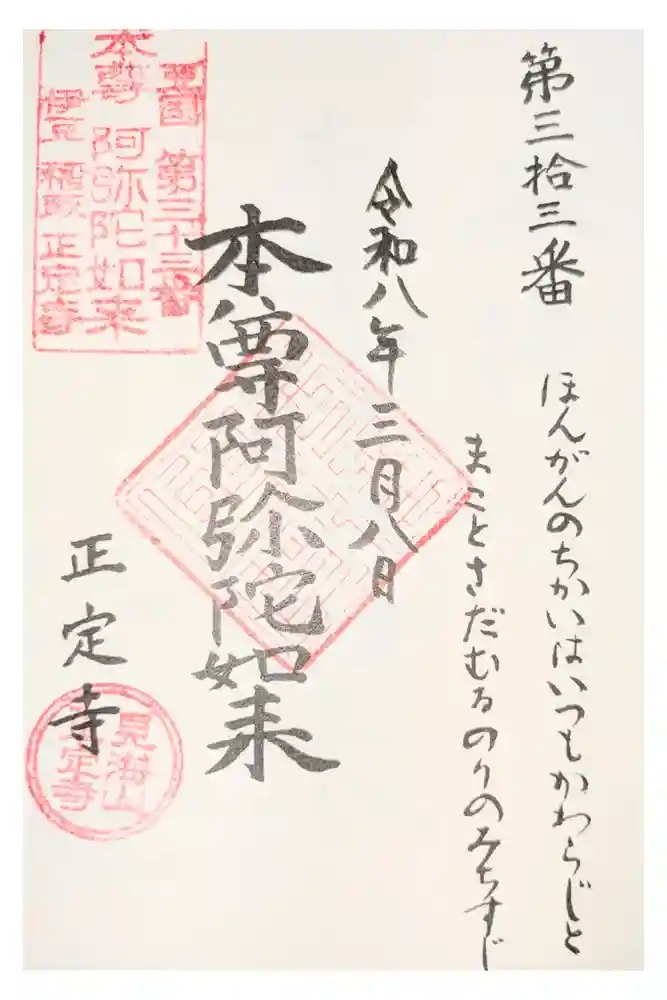 第三拾三番
ほんがんのちかいはいつもかわらじと
まことさだむるのりのみちすじ
令和八年三月八日
本尊阿弥陀如来
正定寺
豆國 第三十三番
本尊 阿弥陀如来
伊豆 稲取 正定寺
見海山
正定寺